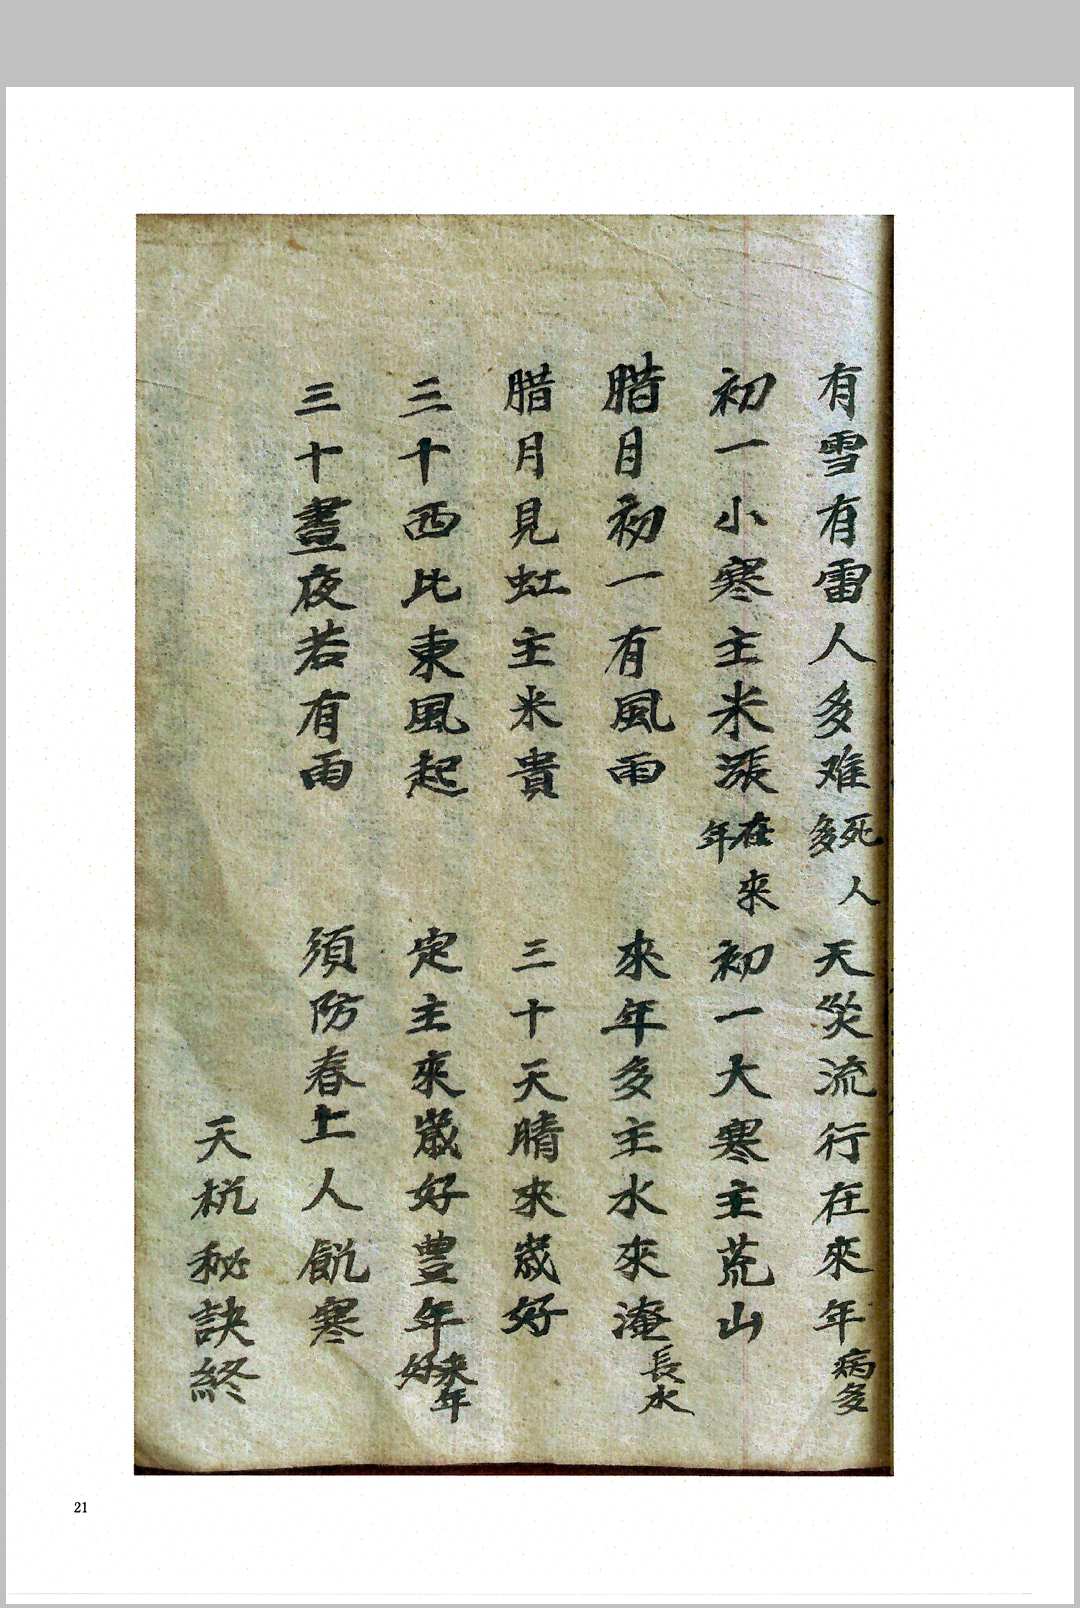 有雪有雷人多难 死人多 天災流行在來年 病多
初一小寒主米漲 在來年 初一大寒主荒山
腊月初一有風雨 來年多主水來淹 長水
腊月見虹主米貴 三十天晴來歲好
三十西比東風起 定主來歲好豊年 来年好
三十晝夜若有雨 須防春上人飢寒
天机秘訣終
21